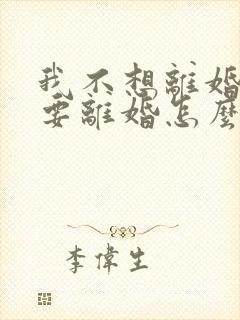 我不想離婚
要離婚怎麼
李偉生